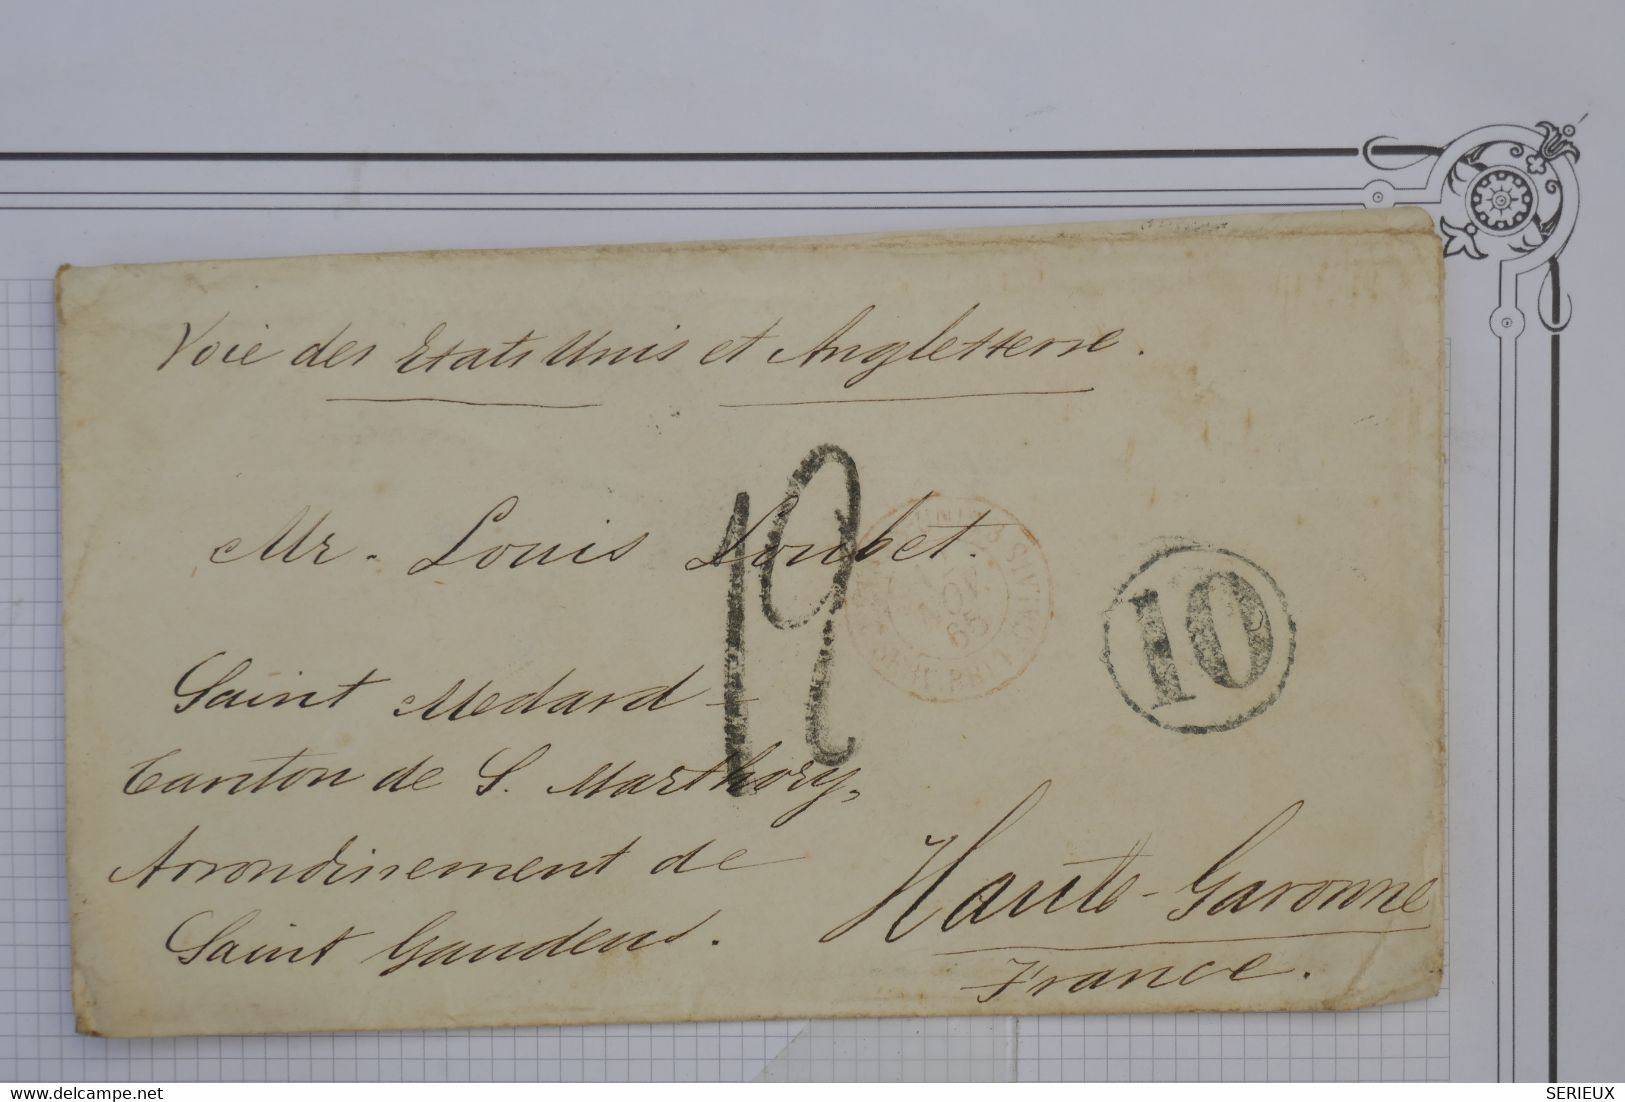 Voie des Etats Unis et Angleterre.
Mr. Louis Loubet.
12
10
NOV.
65
CALAIS
Saint Medard -
Canton de S. Marthory,
Arrondissement de
Saint Gaudens.
Haute-Garonne
France.
www.delcampe.net
SERIEUX